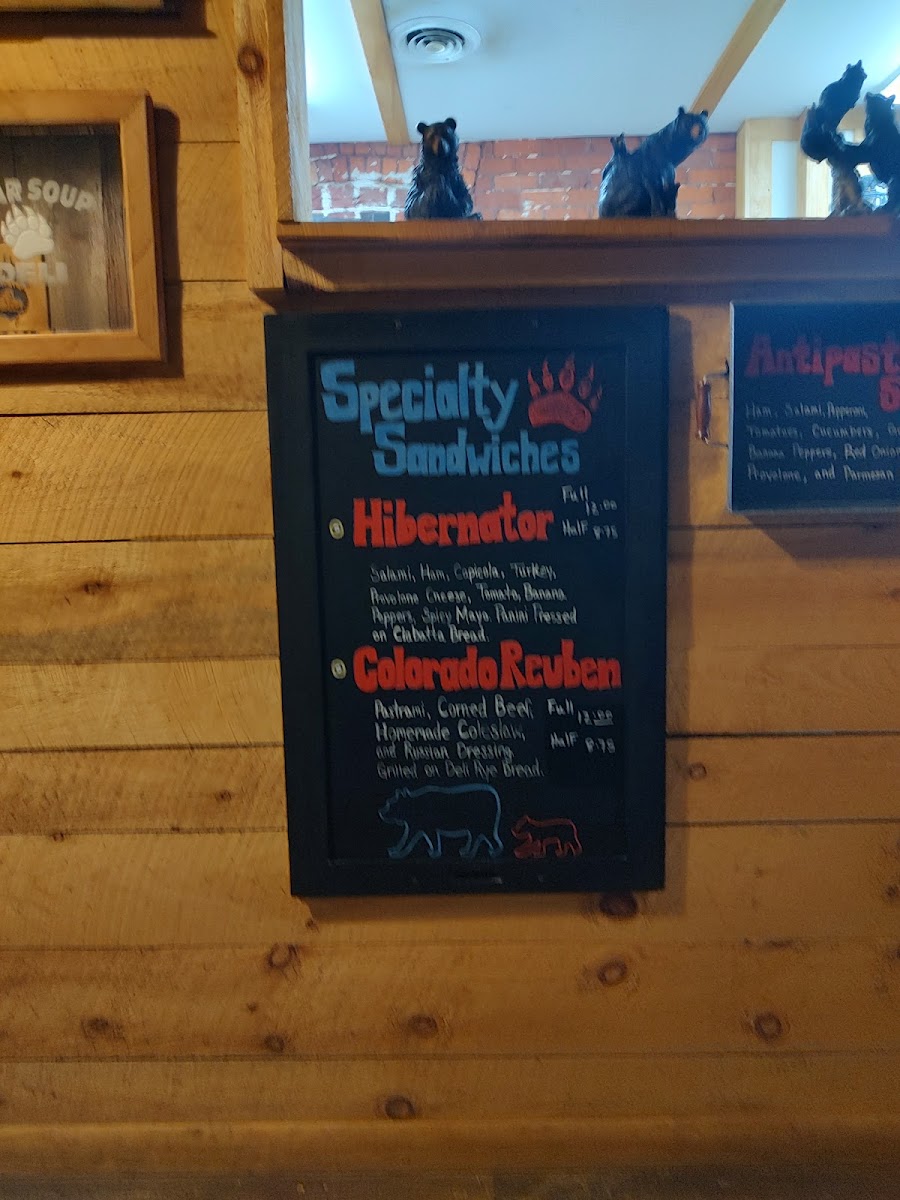 AR SOUP
DELI
Specialty
Sandwiches
Hibernator
Full
12.00
Half 8.75
Salami, Ham, Capicola, Turkey,
Provolone Cheese, Tomato, Banana
Peppers, Spicy Mayo. Panini Pressed
on Ciabatta Bread.
Colorado Reuben
Pastrami, Corned Beef,
Homemade Coleslaw,
and Russian Dressing
Grilled on Deli Rye Bread.
Full 12.00
Half 8.75
Antipast
S
Ham, Salami, Pepperoni,
Tomatoes, Cucumbers, G
Banana Peppers, Red Onion
Provolone, and Parmesan